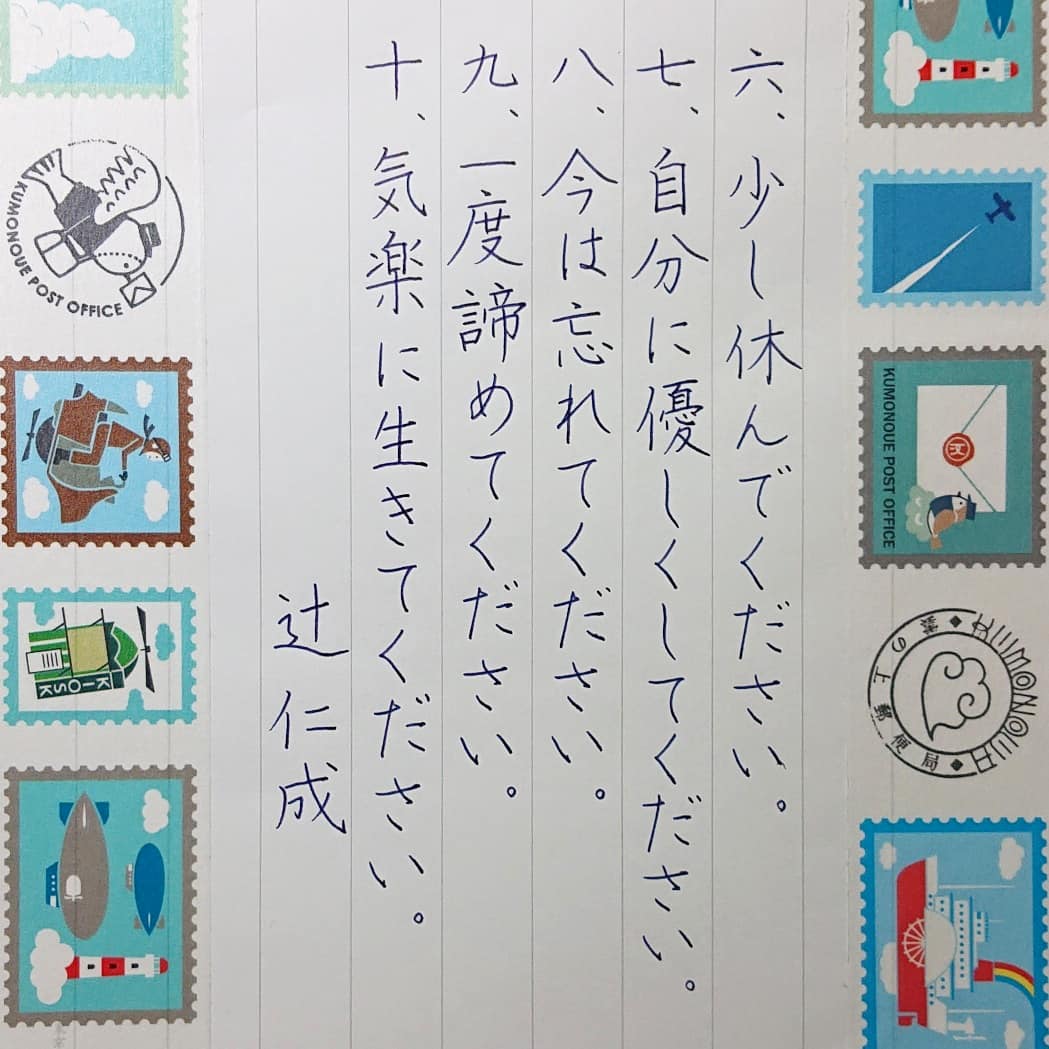 六、少し休んでください。
七、自分に優しくしてください。
八、今は忘れてください。
九、一度諦めてください。
十、気楽に生きてください。
辻 仁成
KUMONOUE POST OFFICE
KIOSK
KUMONOUE POST OFFICE
KUMONOUE
雲の上郵便局